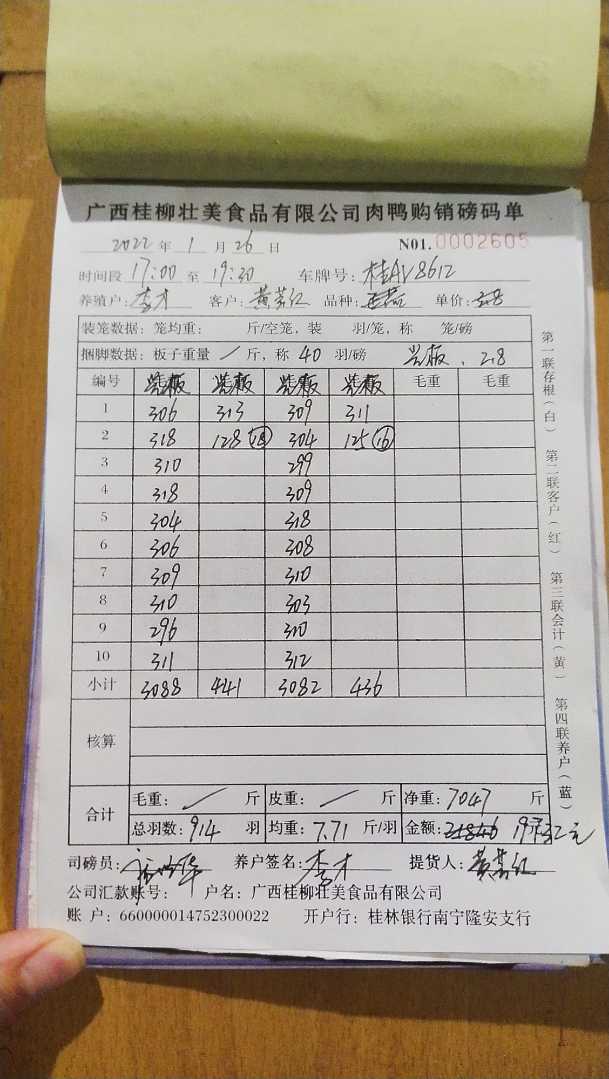 广西桂柳壮美食品有限公司肉鸭购销磅码单
2022 年 1 月 26 日 N01.0002605
时间段 17:00 至 19:30 车牌号: 桂AV8612
养殖户: 李才 客户: 品种: 单价:
装笼数据: 笼均重: 斤/空笼, 装 羽/笼, 称 笼/磅
捆脚数据: 板子重量 / 斤, 称 40 羽/磅 光板. 2.8
编号 光板 光板 光板 光板 毛重 毛重
1 306 313 309 311
2 318 128 304 125 16
3 310 299
4 318 309
5 304 318
6 306 308
7 309 310
8 310 303
9 296 310
10 311 312
小计 3088 441 3082 436
核算
合计 毛重: / 斤 皮重: / 斤 净重: 7047 斤
总羽数: 914 羽 均重: 7.71 斤/羽 金额:
司磅员: 养户签名: 李才 提货人:
公司汇款账号: 户名: 广西桂柳壮美食品有限公司
账 户: 660000014752300022 开户行: 桂林银行南宁隆安支行
第一联存根(白) 第二联客户(红) 第三联会计(黄) 第四联养户(蓝)